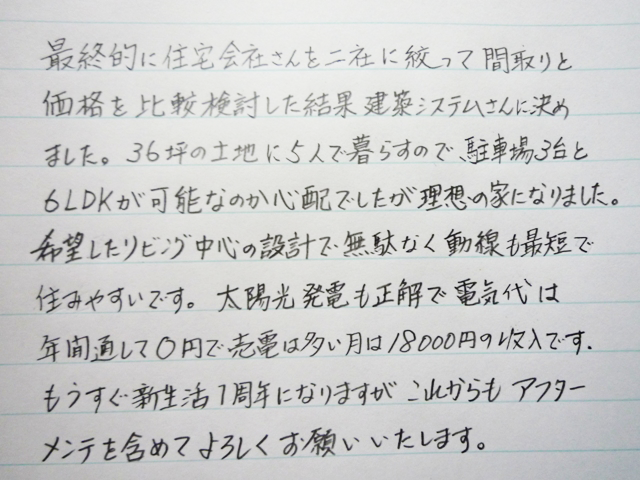 最終的に住宅会社さんを二社に絞って間取りと
価格を比較検討した結果建築システムさんに決め
ました。36坪の土地に5人で暮らすので駐車場3台と
6LDKが可能なのか心配でしたが理想の家になりました。
希望したリビング中心の設計で無駄なく動線も最短で
住みやすいです。太陽光発電も正解で電気代は
年間通して0円で売電は多い月は18000円の収入です.
もうすぐ新生活1周年になりますがこれからもアフター
メンテを含めてよろしくお願いいたします。